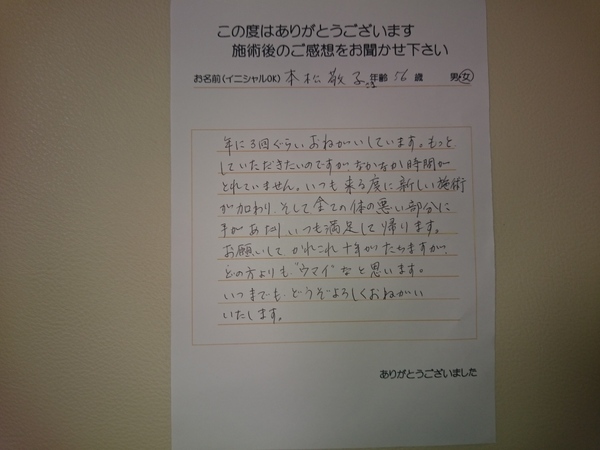 この度はありがとうございます
施術後のご感想をお聞かせ下さい
お名前(イニシャルOK) 本松敬子 年齢 56 歳 男・女
年に3回ぐらいおねがいしています。もっと
していただきたいのですが、なかなか時間が
とれていません。いつも来る度に新しい施術
が加わり、そして全ての体の悪い部分に
手があたり、いつも満足して帰ります。
お願いして かれこれ十年がたちますが、
どの方よりも“ウマイ”なと思います。
いつまでも、どうぞよろしくおねがい
いたします。
ありがとうございました